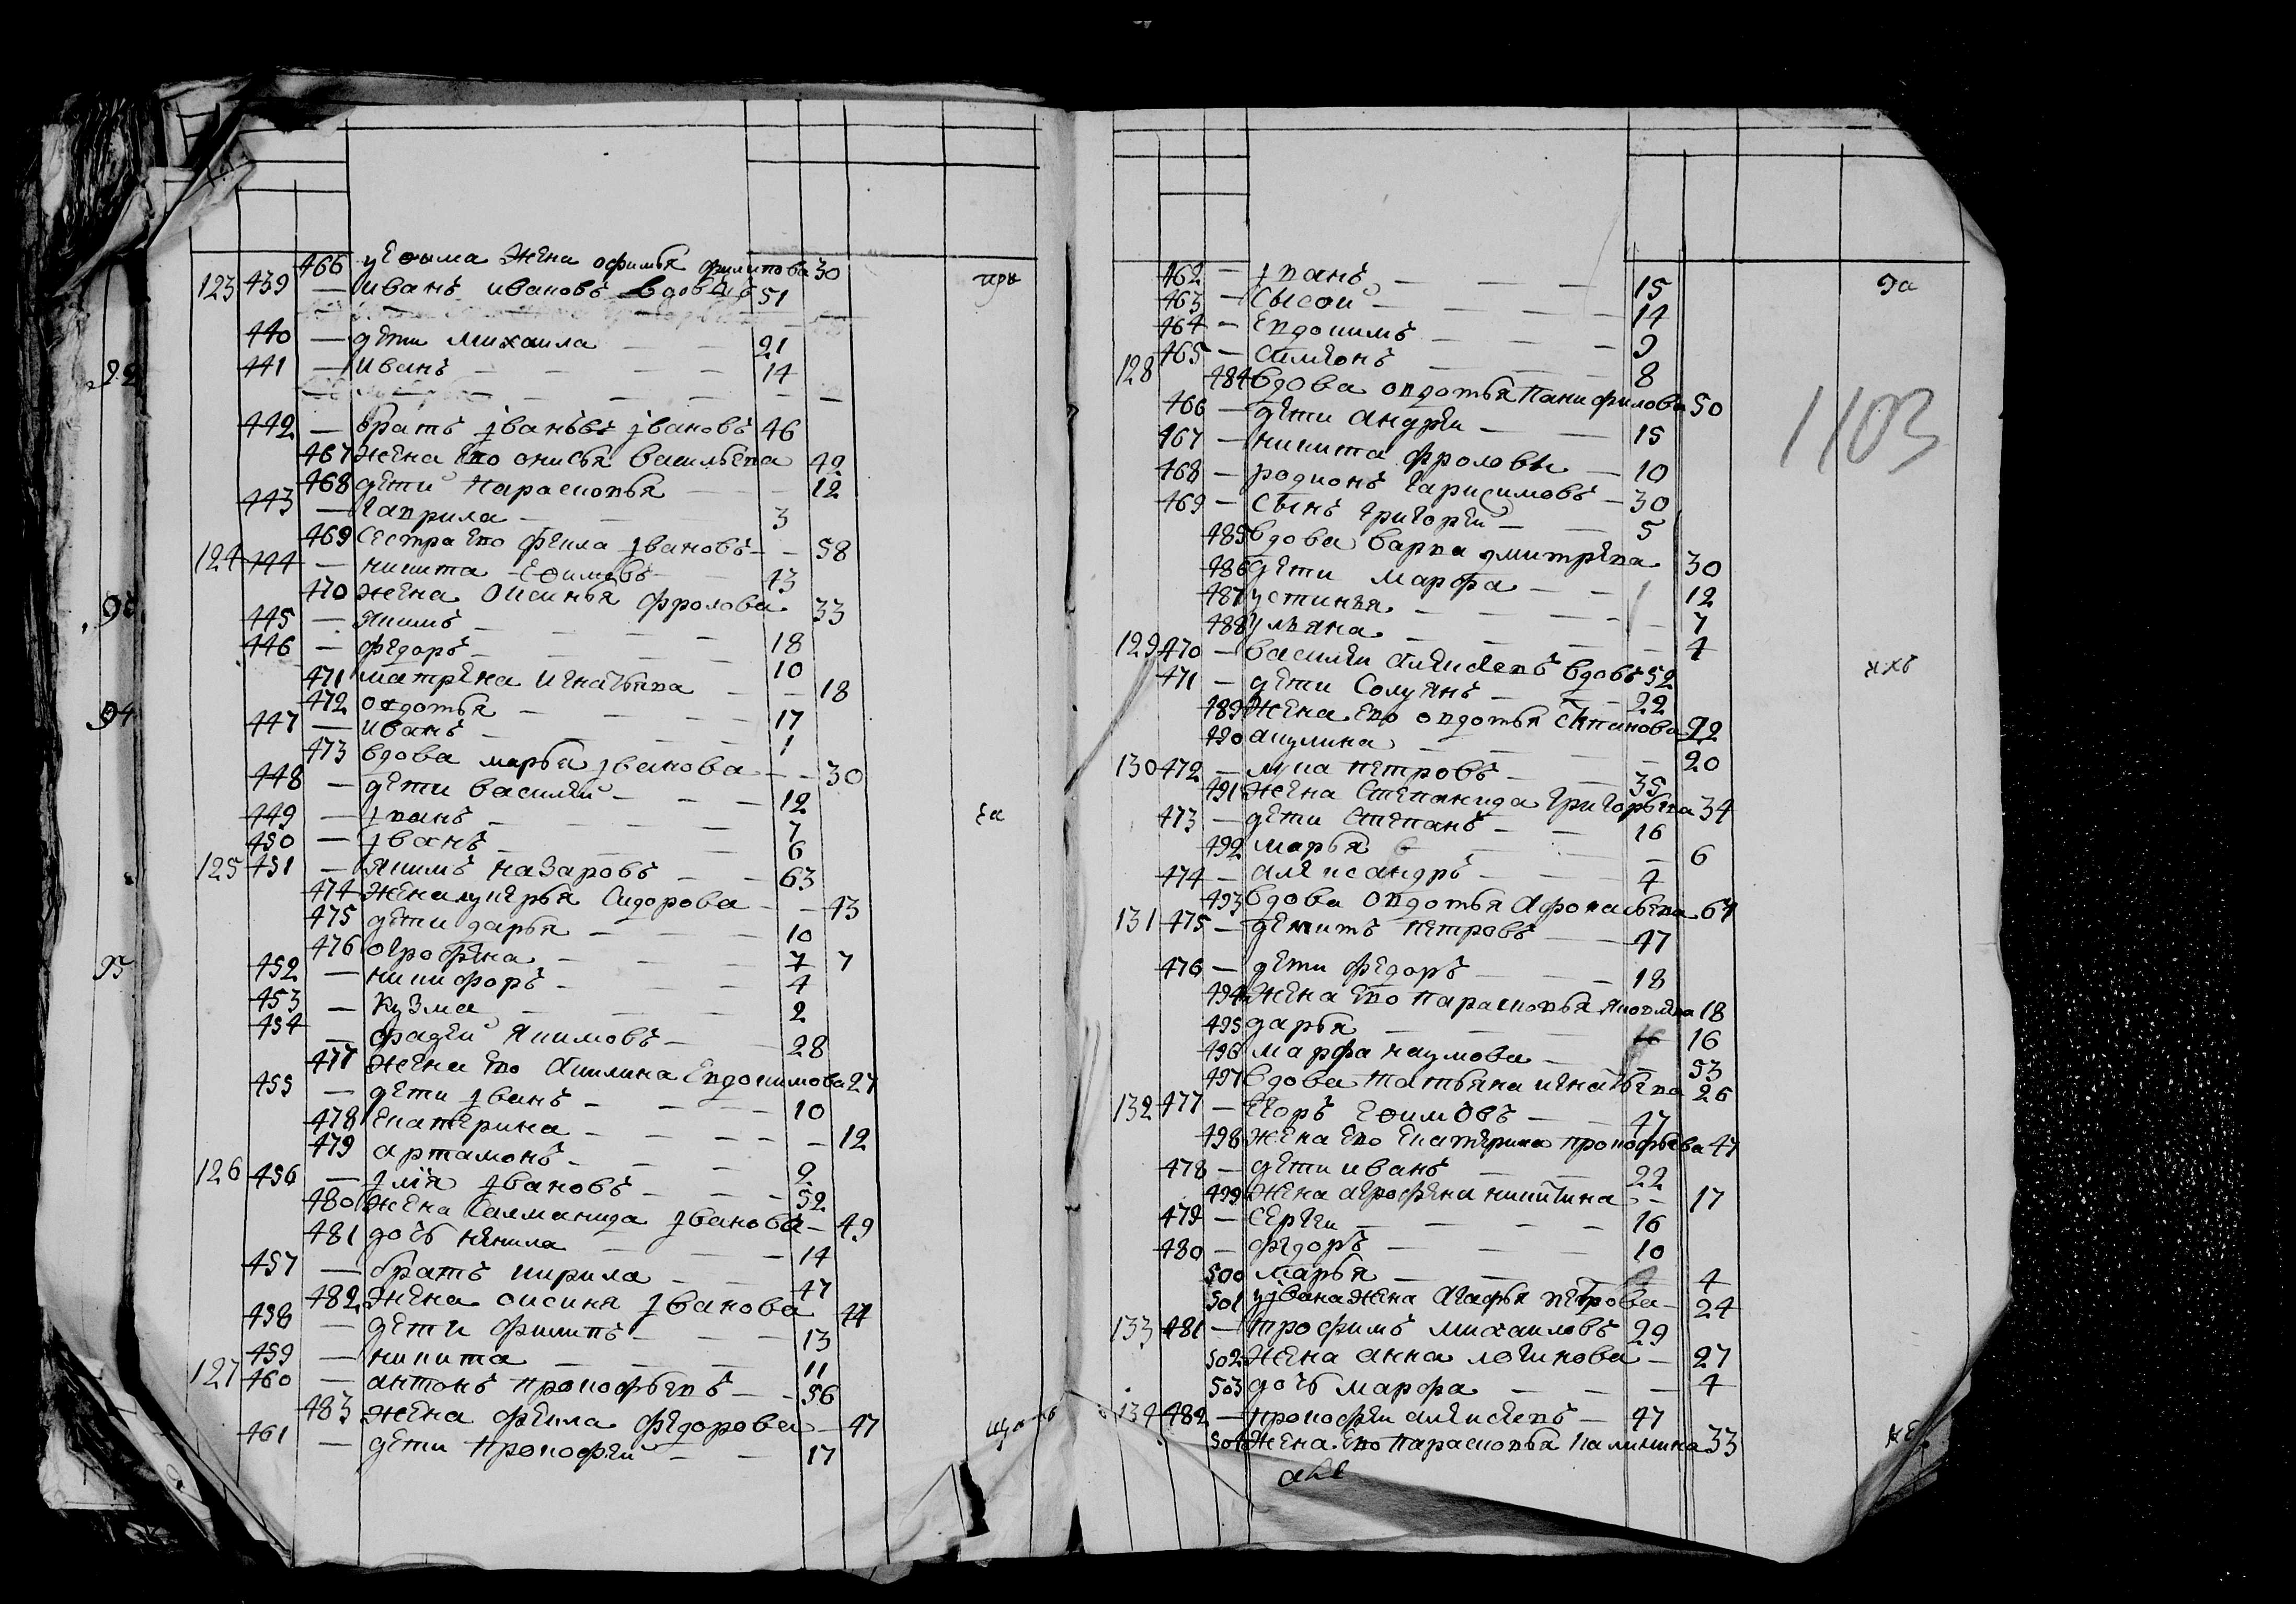 466 уефима жена офимья филипова 30
123 439 — иванъ ивановъ вдовъ 51
440 — дети михаила — — 21
441 — иванъ — — — 14
442 — братъ јванъ јвановъ 46
467 жена ево онисья васильева 42
468 дети парасковья — — 12
443 — гаврила — — 3
469 сестра ево фекла јвановъ — — 58
124 444 — никита ефимовъ — 43
470 жена оксинья фролова 33
445 — якимъ — — — 18
446 — федоръ — — — 10
471 матрена игнатьева — — 18
472 овдотья — — — 17
447 — иванъ — — — 1
473 вдова марья јванова — — 30
448 — дети василей — — — 12
449 — јванъ — — — 7
450 — јванъ — — — 6
125 451 — якимъ назаровъ — — 63
474 жена лукерья сидорова — — 43
475 дети дарья — — — 10
476 огрофена — — — 7 7
452 — никифоръ — — — 4
453 — кузма — — — 2
454 — фадей якимовъ — — 28
477 жена ево акилина евдокимова 27
455 — дети јванъ — — — 10
478 екатерина — — — — 12
479 артамонъ — — — 2
126 456 — јлія јвановъ — — — 52
480 жена саламанида јванова — 49
481 дочь ненила — — — 14
457 — братъ кирила — — 47
482 жена оксинія јванова 44
458 — дети филипъ — — 13
459 — никита — — — 11
127 460 — антонъ прокофьевъ — — 56
483 жена фекла федорова — 47
461 — дети прокофей — — 17
462 — јванъ — — — 15
463 — сысой — — — 14
464 — евдокимъ — — — 9
465 — симионъ — — — 8
128 484 вдова овдотья панифилова 50
466 — дети андрей — — 15
467 — никита фроловы — 10
468 — родионъ гарисимовъ — 30
469 — сынъ григорей — — 5
485 вдова варва дмитрева 30
486 дети марфа — — 12
487 устинья — — — 7
488 ульяна — — — 4
129 470 — василей алексеевъ вдовъ 52
471 — дети солуянъ — — 22
489 жена ево овдотья степанова 22
490 акулина — — — 20
130 472 — лука петровъ — — 35
491 жена степанида григорьева 34
473 — дети степанъ — — 16
492 марья — — — 6
474 — александръ — — 4
493 вдова овдотья афонасьева 64
131 475 — петровъ — — 47
476 — дети федоръ — — 18
494 жена ево парасковья яковлева 18
495 дарья — — — 16 16
496 марфа наумова — — 53
497 вдова татьяна игнатьева 26
132 477 — егоръ ефимовъ — — 47
498 жена ево екатерина прокофьева 47
478 — дети иванъ — — 22
499 жена агрофена никитина — — 17
479 — сергеи — — — 16
480 — федоръ — — — 10
500 марья — — — 4
501 ујвана жена агафья петрова — 24
133 481 — трофимъ михаиловъ 29
502 жена анна логинова — 27
503 дочь марфа — — — 4
134 482 — прокофеи алексеевъ — 47
504 жена ево парасковья калинина 33
при
за
1103
92
94
95